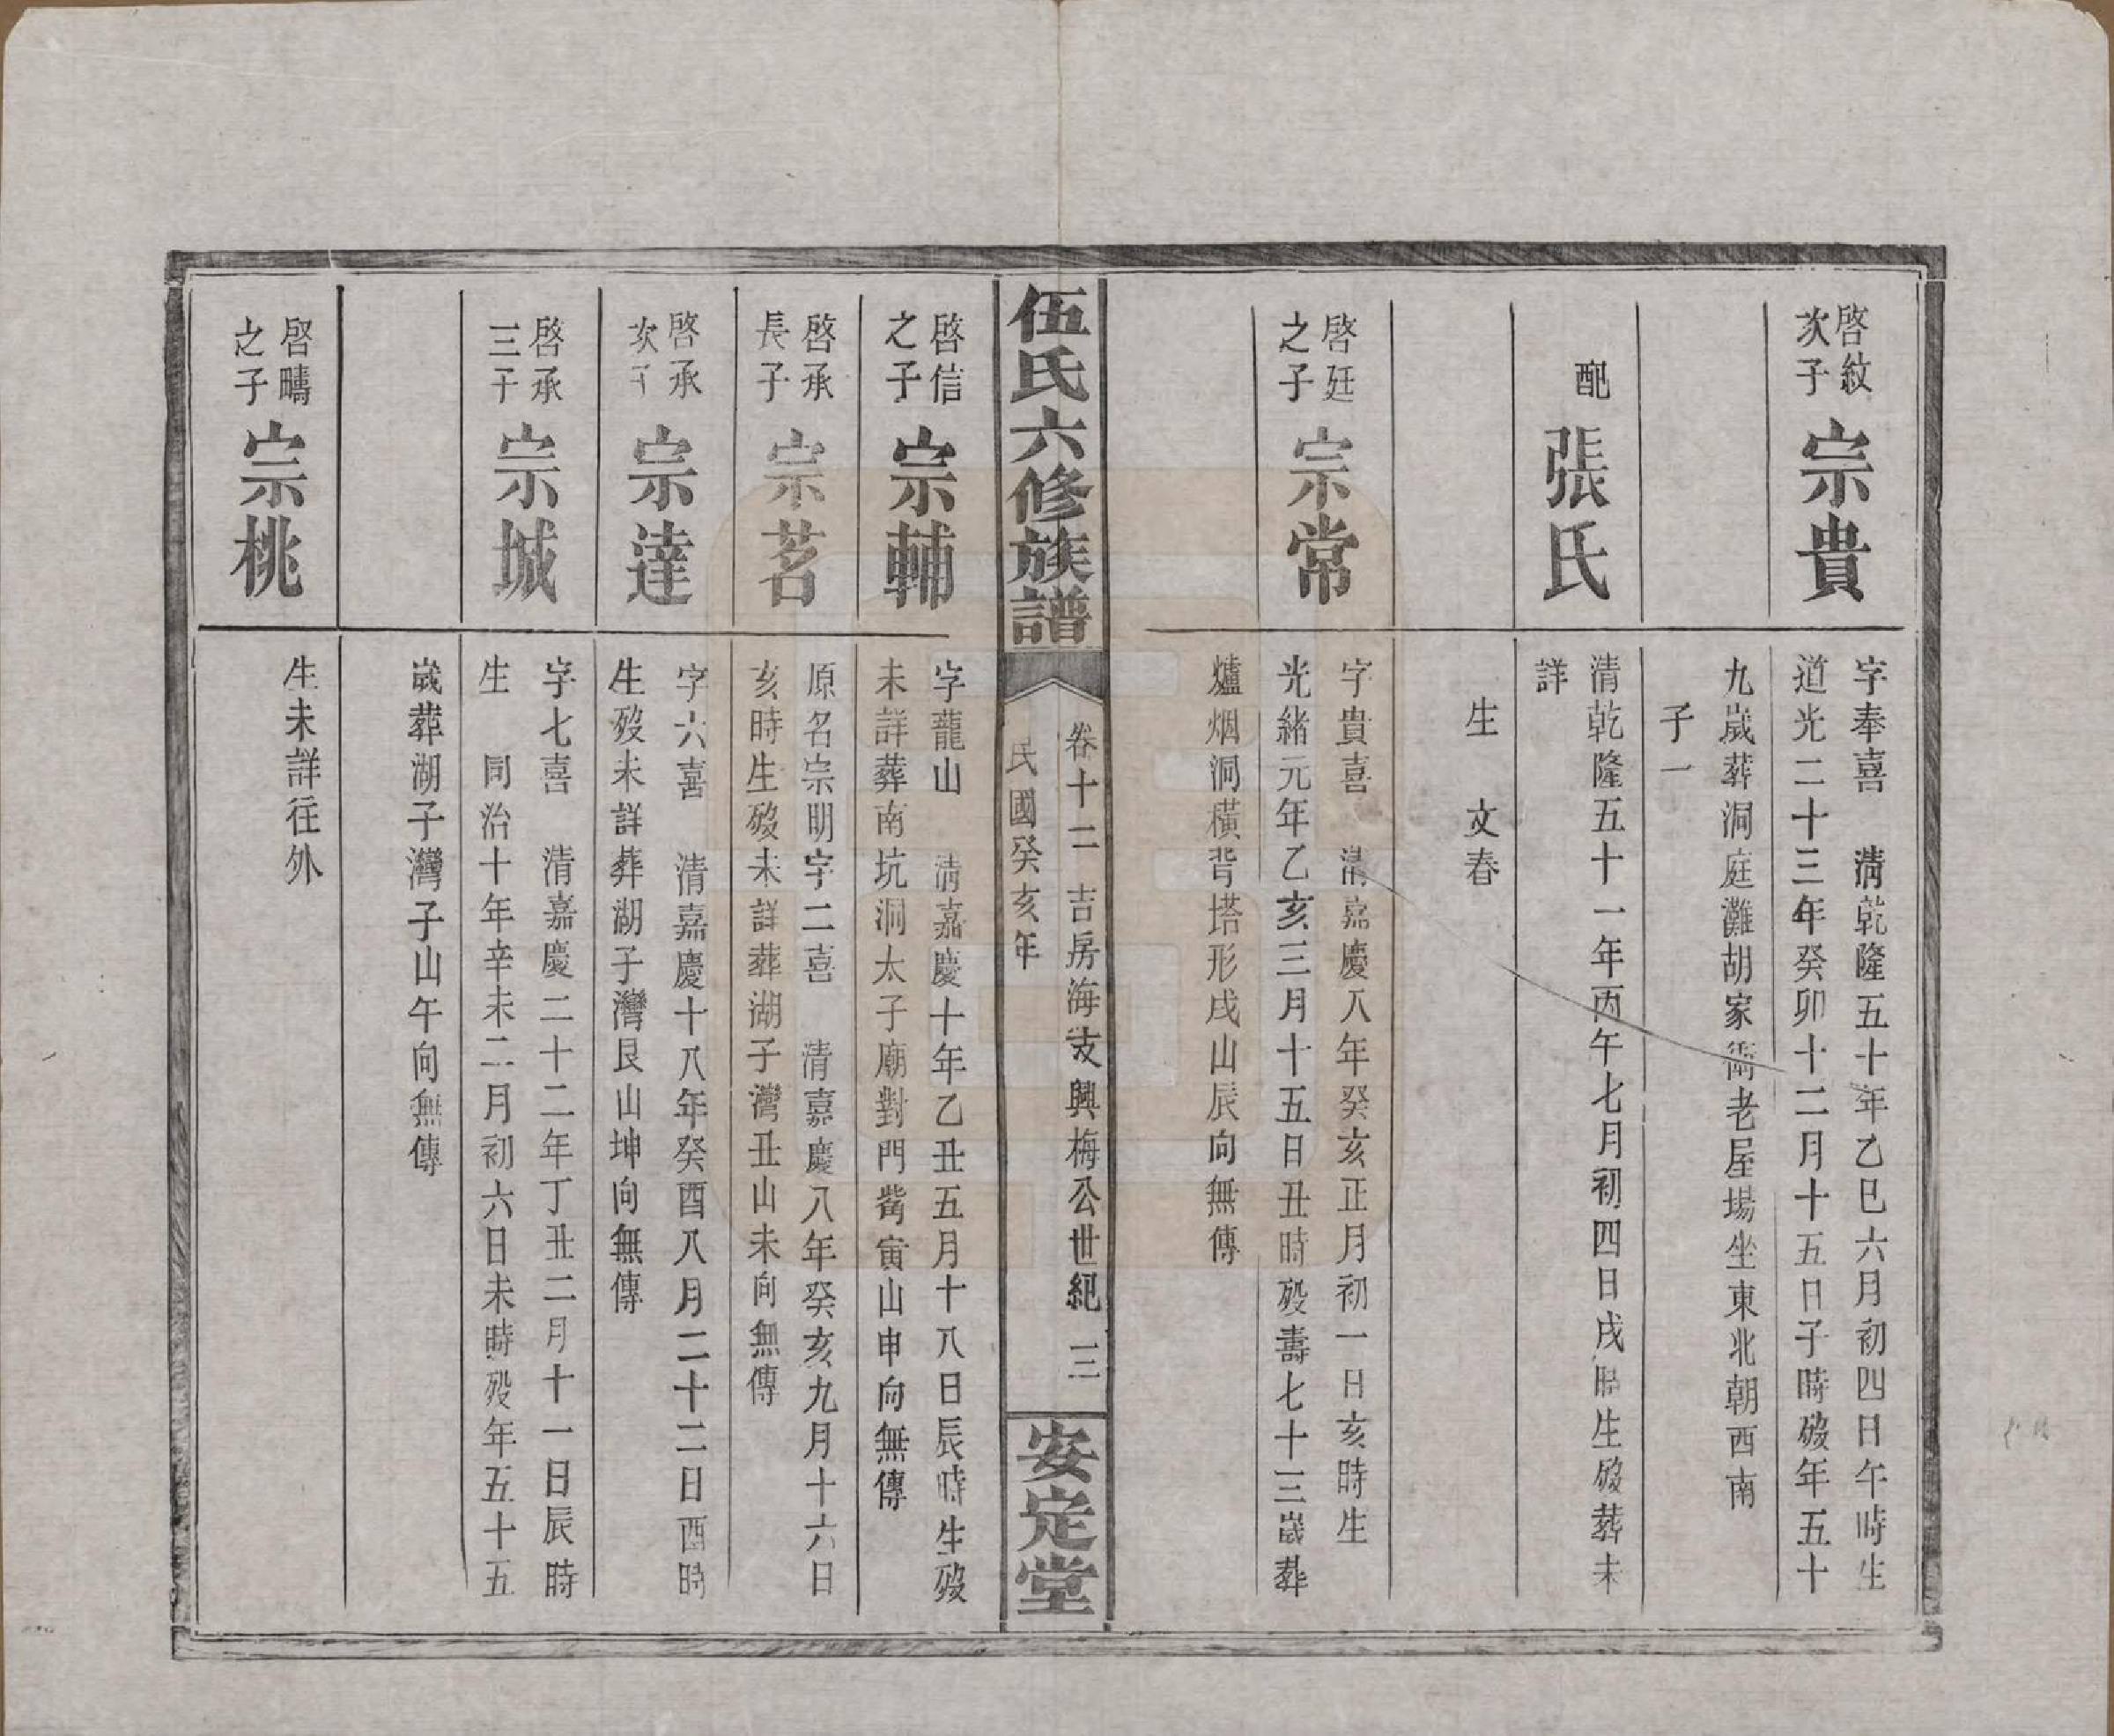 啓紋
次子
宗貴
字奉喜　清乾隆五十年乙巳六月初四日午時生
道光二十三年癸卯十二月十五日子時歿年五十
九歲葬洞庭灘胡家衖老屋場坐東北朝西南
子一
配
張氏
清乾隆五十一年丙午七月初四日戌時生歿葬未
詳
生　文春
啓廷
之子
宗常
字貴喜　清嘉慶八年癸亥正月初一日亥時生
光緒元年乙亥三月十五日丑時歿壽七十三歲葬
爐烟洞橫背塔形戌山辰向無傳
伍氏六修族譜
卷十二　吉房海支興梅公世紀　三
民國癸亥年
安定堂
啓信
之子
宗輔
字龍山　清嘉慶十年乙丑五月十八日辰時生歿
未詳葬南坑洞太子廟對門觜寅山申向無傳
啓承
長子
宗茗
原名宗明字二喜　清嘉慶八年癸亥九月十六日
亥時生歿未詳葬湖子灣丑山未向無傳
啓承
次子
宗達
字六喜　清嘉慶十八年癸酉八月二十二日酉時
生歿未詳葬湖子灣艮山坤向無傳
啓承
三子
宗城
字七喜　清嘉慶二十二年丁丑二月十一日辰時
生　同治十年辛未二月初六日未時歿年五十五
歲葬湖子灣子山午向無傳
啓疇
之子
宗桃
生未詳往外